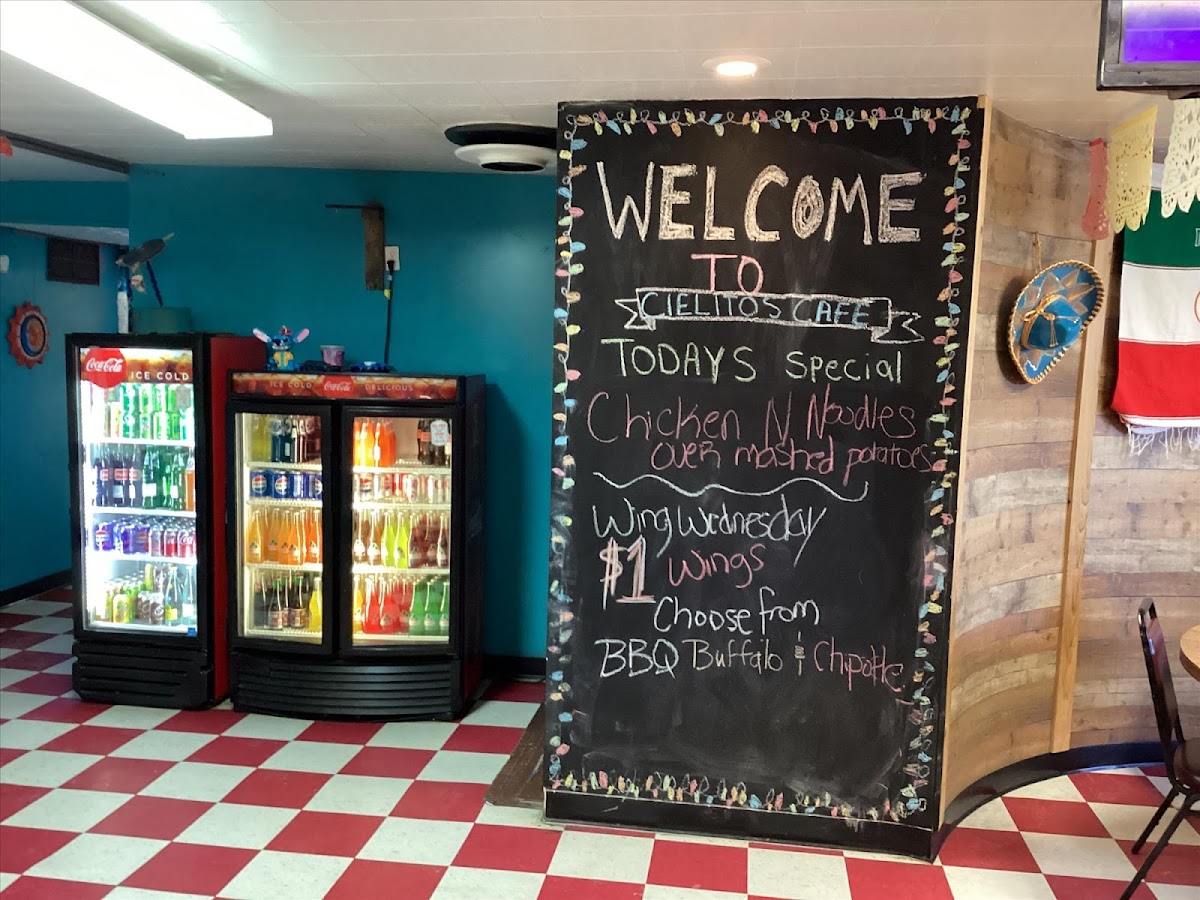 WELCOME
TO
CIELITOS CAFE
TODAYS Special
Chicken N Noodles
over mashed potatoes
Wing Wednesday
$1 Wings
Choose from
BBQ Buffalo & Chipotle
Coca-Cola
ICE COLD
ICE COLD Coca-Cola DELICIOUS